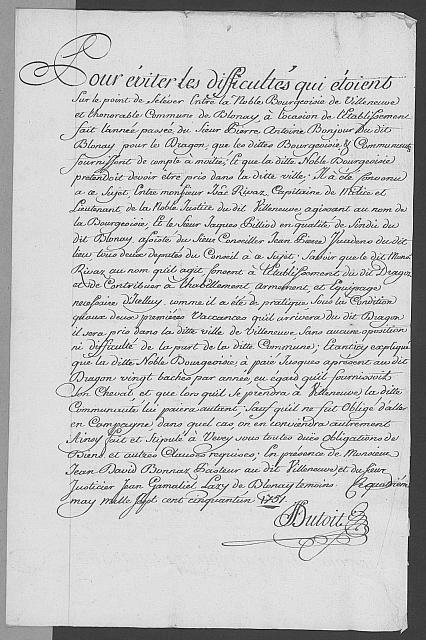 Pour éviter les difficultés qui étoient
Sur le point de S'elever Entre la Noble Bourgeoisie de Villeneuve
et l'honorable Commune de Blonay, à l'ocasion de l'Etablissement
fait l'année passée, du Sieur Pierre Antoine Bonjour du dit
Blonay pour le Dragon, que les dittes Bourgeoisie & Communauté
fournissent de compte a moitié; & que la ditte Noble Bourgeoisie
pretendoit devoir être pris dans la ditte ville; Il a été convenu
a ce Sujet Entre monsieur Rivaz, Capitaine de Milice et
Lieutenant de la Noble Justice du dit Villeneuve agissant au nom de
la Bourgeoisie, Et le Sieur Jaques Billiod en qualité de Sindic du
dit Blonay, assisté du Sieur Conseiller Jean Pierre du dit
lieu, tous deux deputés du Conseil à ce Sujet; Savoir que le dit Monsr
Rivaz au nom qu'il agit, consent à l'Etablissement du dit Dragon
et de Contribuer à l'habillement, Armement, et Equipage
necessaire d'Icelluy, comme il a été de pratique, Sous la Condition
qu'aux deux premieres Vaccances qu'il arrivera du dit Dragon
il sera pris dans la ditte ville de Villeneuve Sans aucune oposition
ni difficulté de la part de la ditte Commune; Etant icy expliqué
que la ditte Noble Bourgeoisie, à paié Jusques apresent au dit
Dragon vingt baches par année, eu egard qu'il fournissoit
Son Cheval, et que lors qu'il Se prendra à Villeneuve, la ditte
Communauté lui paiera autant, Sauf qu'il ne fut Obligé d'aller
en Campagne, dans quel cas, on en conviendra autrement
Ainsy fait et Stipulé à Vevey sous toutes dües Obligations de
Biens et autres Clauses requises; En presence de Monsieur
Jean David Bonnaz Recteur au dit Villeneuve, et du Sieur
Justicier Jean Gamaliel de Blonay temoins. Ce
may mille Sept cent cinquantun 1751.
Dutoit